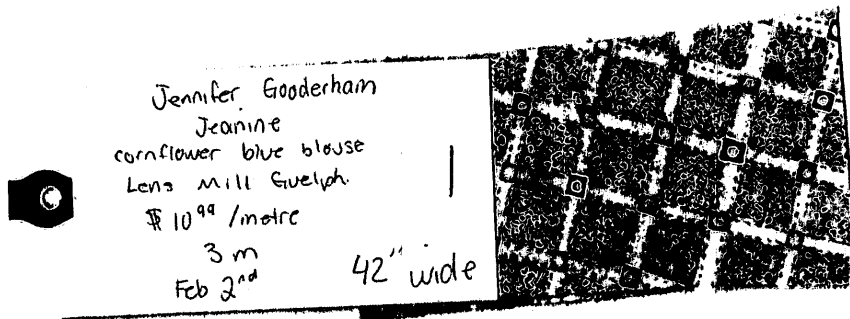 Jennifer Gooderham
Jeanine
cornflower blue blouse
Lens Mill Guelph.
$10⁹⁹ /metre
3 m
Feb 2nd
42" wide